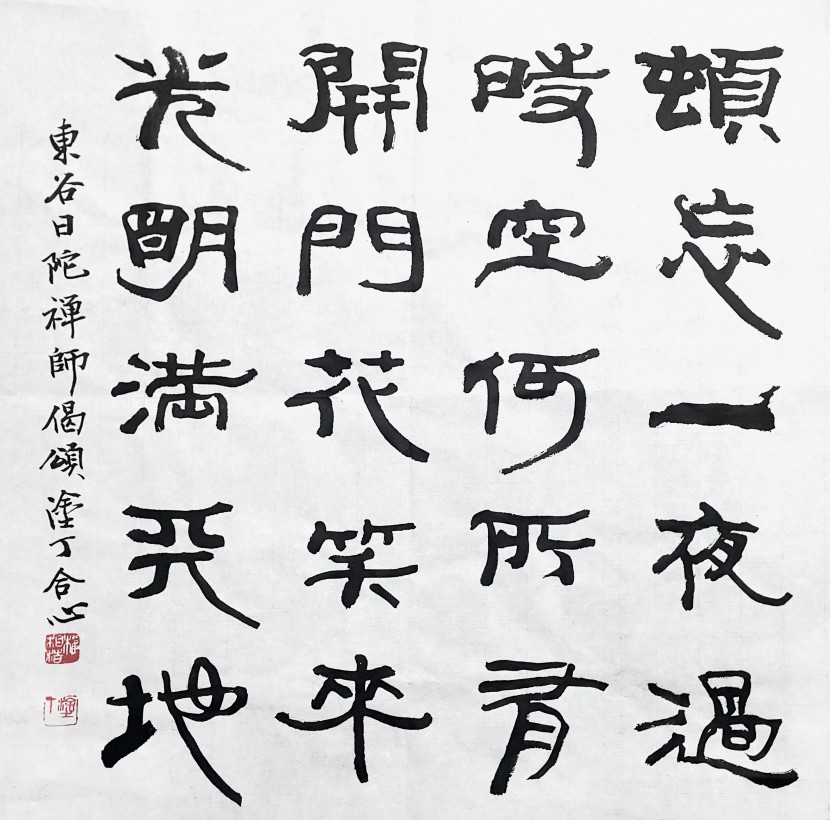 頓忘一夜過
時空何所有
開門花笑來
光明滿天地
東谷日陀禅師偈頌塗丁合心